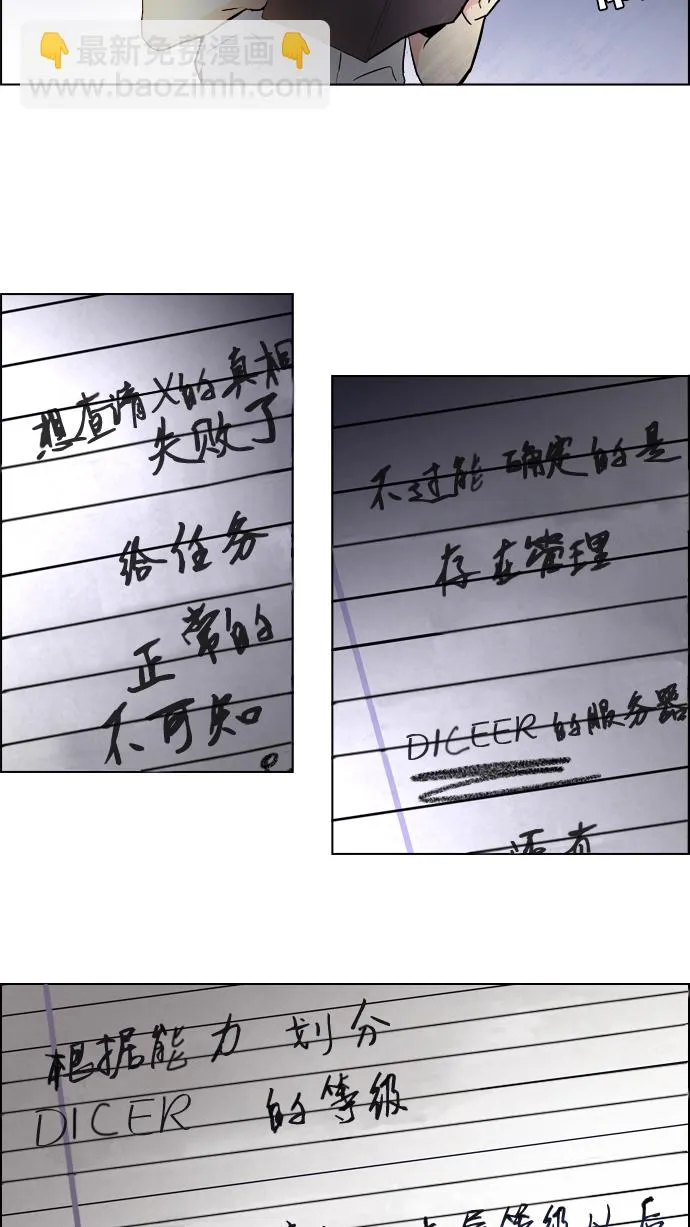 最新免费漫画
www.baozimh.com
想查清X的真相
失败了
给任务
正常的
不可知。
不过能 确定的是
存在管理
DICEER的服务器
还有
根据能力 划分
DICER 的等级
等级以后